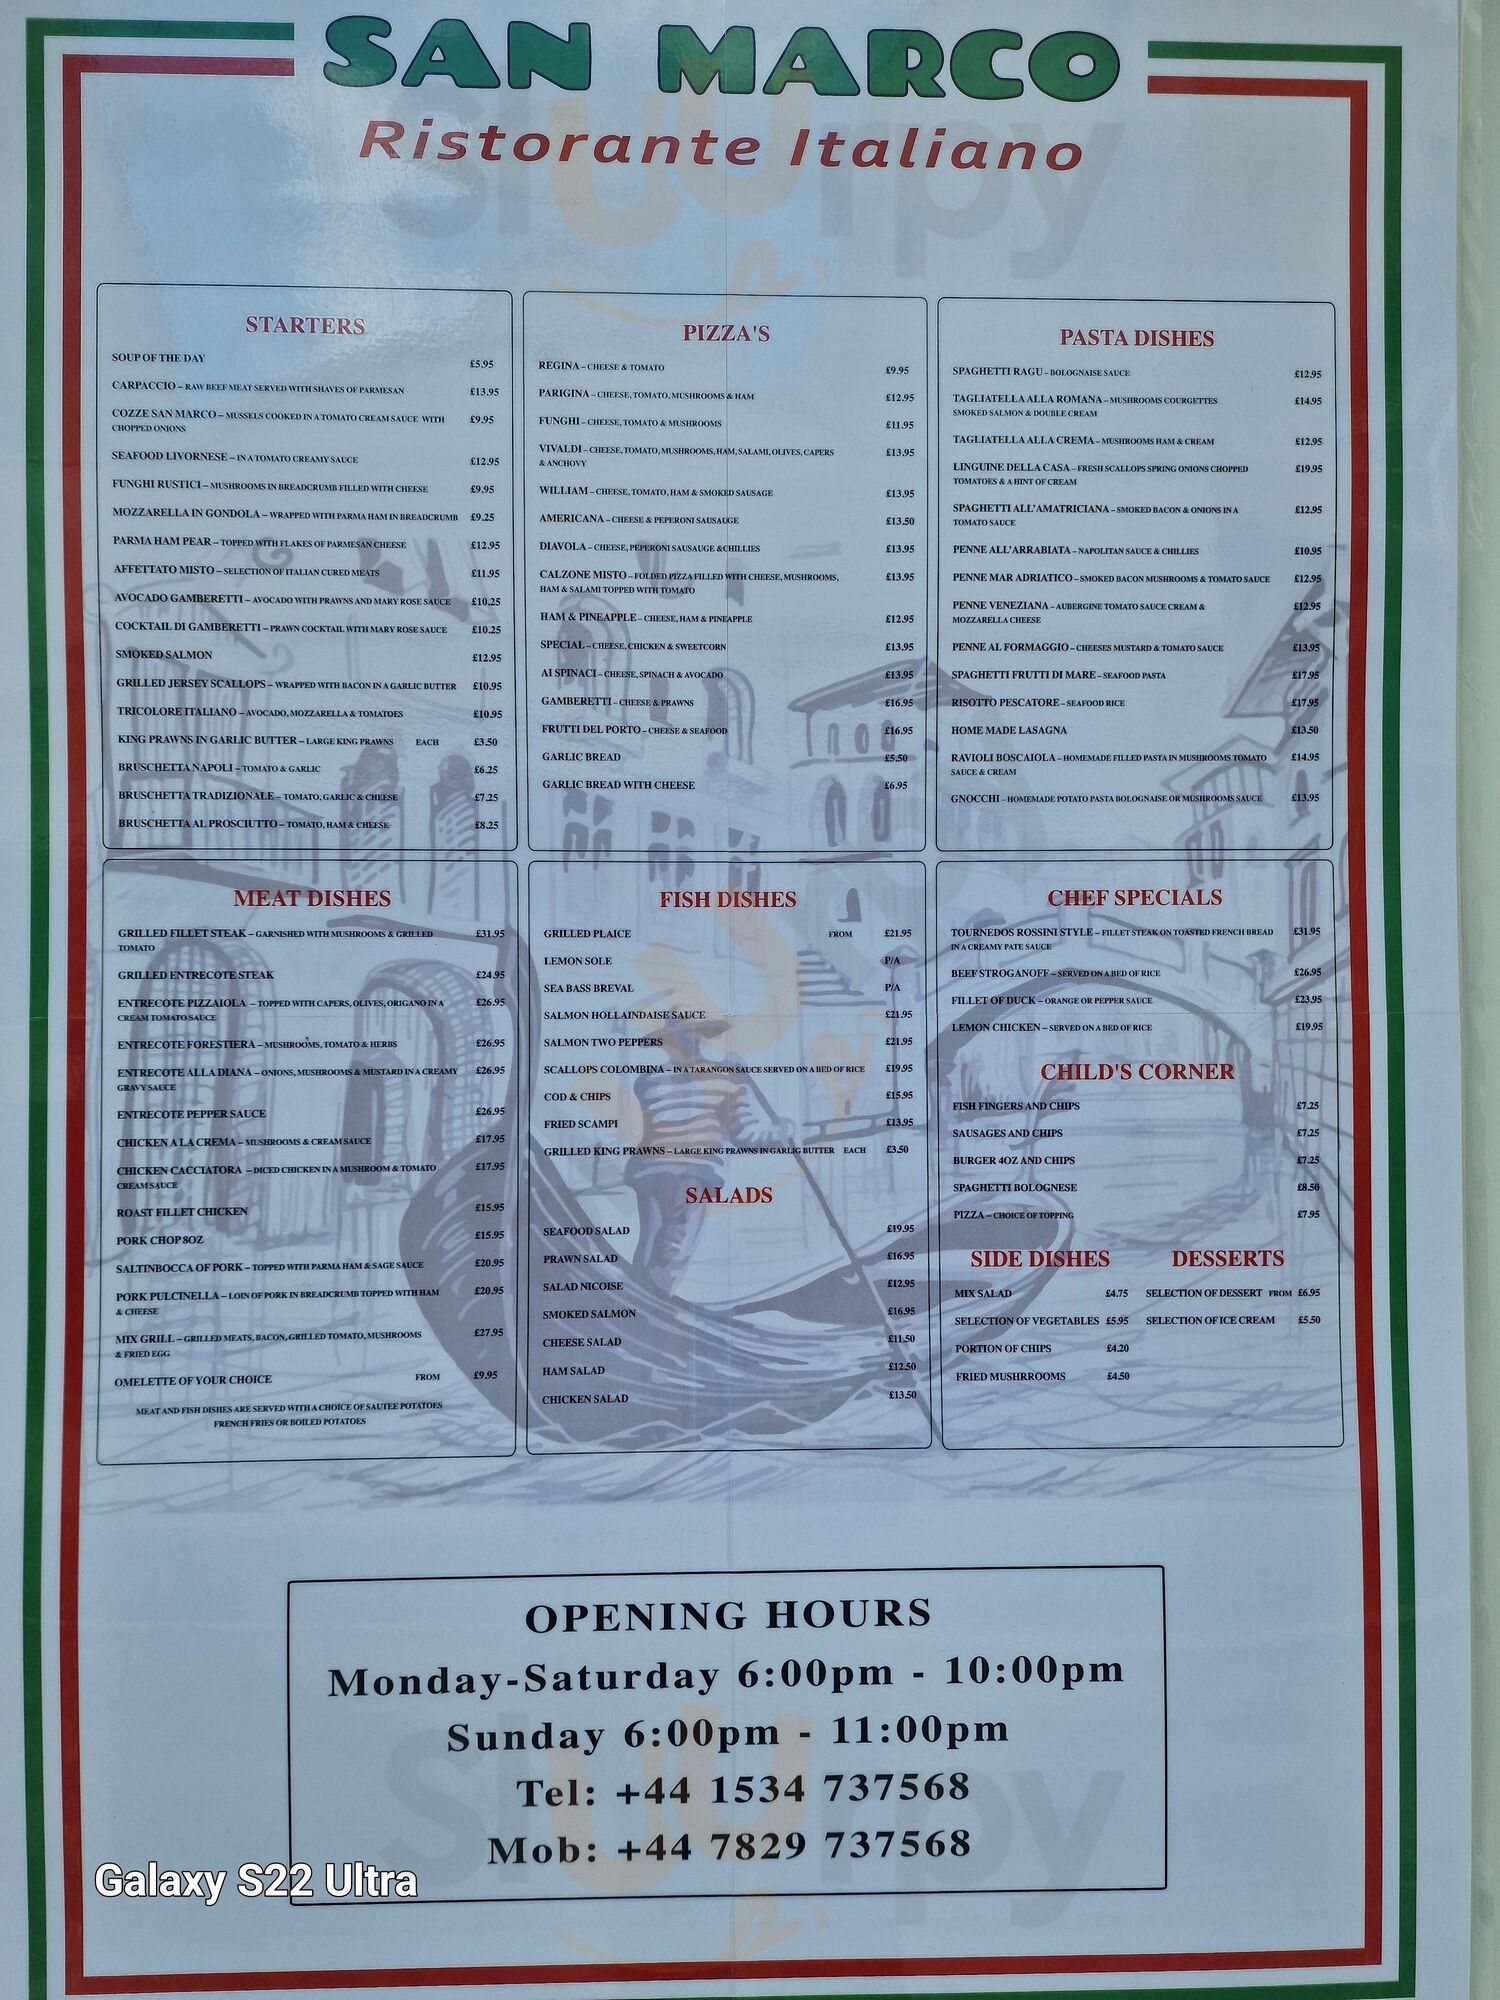 SAN MARCO
Ristorante Italiano
STARTERS
SOUP OF THE DAY £5.95
CARPACCIO – RAW BEEF MEAT SERVED WITH SHAVES OF PARMESAN £13.95
COZZE SAN MARCO – MUSSELS COOKED IN A TOMATO CREAM SAUCE WITH £9.95
CHOPPED ONIONS
SEAFOOD LIVORNESE – IN A TOMATO CREAMY SAUCE £12.95
FUNGHI RUSTICI – MUSHROOMS IN BREADCRUMB FILLED WITH CHEESE £9.95
MOZZARELLA IN GONDOLA – WRAPPED WITH PARMA HAM IN BREADCRUMB £9.25
PARMA HAM PEAR – TOPPED WITH FLAKES OF PARMESAN CHEESE £12.95
AFFETTATO MISTO – SELECTION OF ITALIAN CURED MEATS £11.95
AVOCADO GAMBERETTI – AVOCADO WITH PRAWNS AND MARY ROSE SAUCE £10.25
COCKTAIL DI GAMBERETTI – PRAWN COCKTAIL WITH MARY ROSE SAUCE £10.25
SMOKED SALMON £12.95
GRILLED JERSEY SCALLOPS – WRAPPED WITH BACON IN A GARLIC BUTTER £10.95
TRICOLORE ITALIANO – AVOCADO, MOZZARELLA & TOMATOES £10.95
KING PRAWNS IN GARLIC BUTTER – LARGE KING PRAWNS EACH £3.50
BRUSCHETTA NAPOLI – TOMATO & GARLIC £6.25
BRUSCHETTA TRADIZIONALE – TOMATO, GARLIC & CHEESE £7.25
BRUSCHETTA AL PROSCIUTTO – TOMATO, HAM & CHEESE £8.25
PIZZA'S
REGINA – CHEESE & TOMATO £9.95
PARIGINA – CHEESE, TOMATO, MUSHROOMS & HAM £12.95
FUNGHI – CHEESE, TOMATO & MUSHROOMS £11.95
VIVALDI – CHEESE, TOMATO, MUSHROOMS, HAM, SALAMI, OLIVES, CAPERS £13.95
& ANCHOVY
WILLIAM – CHEESE, TOMATO, HAM & SMOKED SAUSAGE £13.95
AMERICANA – CHEESE & PEPERONI SAUSAUGE £13.50
DIAVOLA – CHEESE, PEPERONI SAUSAUGE &CHILLIES £13.95
CALZONE MISTO – FOLDED PIZZA FILLED WITH CHEESE, MUSHROOMS, £13.95
HAM & SALAMI TOPPED WITH TOMATO
HAM & PINEAPPLE – CHEESE, HAM & PINEAPPLE £12.95
SPECIAL – CHEESE, CHICKEN & SWEETCORN £13.95
AI SPINACI – CHEESE, SPINACH & AVOCADO £13.95
GAMBERETTI – CHEESE & PRAWNS £16.95
FRUTTI DEL PORTO – CHEESE & SEAFOOD £16.95
GARLIC BREAD £5.50
GARLIC BREAD WITH CHEESE £6.95
PASTA DISHES
SPAGHETTI RAGU – BOLOGNAISE SAUCE £12.95
TAGLIATELLA ALLA ROMANA – MUSHROOMS COURGETTES £14.95
SMOKED SALMON & DOUBLE CREAM
TAGLIATELLA ALLA CREMA – MUSHROOMS HAM & CREAM £12.95
LINGUINE DELLA CASA – FRESH SCALLOPS SPRING ONIONS CHOPPED £19.95
TOMATOES & A HINT OF CREAM
SPAGHETTI ALL'AMATRICIANA – SMOKED BACON & ONIONS IN A £12.95
TOMATO SAUCE
PENNE ALL'ARRABIATA – NAPOLITAN SAUCE & CHILLIES £10.95
PENNE MAR ADRIATICO – SMOKED BACON MUSHROOMS & TOMATO SAUCE £12.95
PENNE VENEZIANA – AUBERGINE TOMATO SAUCE CREAM & £12.95
MOZZARELLA CHEESE
PENNE AL FORMAGGIO – CHEESES MUSTARD & TOMATO SAUCE £13.95
SPAGHETTI FRUTTI DI MARE – SEAFOOD PASTA £17.95
RISOTTO PESCATORE – SEAFOOD RICE £17.95
HOME MADE LASAGNA £13.50
RAVIOLI BOSCAIOLA – HOMEMADE FILLED PASTA IN MUSHROOMS TOMATO £14.95
SAUCE & CREAM
GNOCCHI – HOMEMADE POTATO PASTA BOLOGNAISE OR MUSHROOMS SAUCE £13.95
MEAT DISHES
GRILLED FILLET STEAK – GARNISHED WITH MUSHROOMS & GRILLED £31.95
TOMATO
GRILLED ENTRECOTE STEAK £24.95
ENTRECOTE PIZZAIOLA – TOPPED WITH CAPERS, OLIVES, ORIGANO IN A £26.95
CREAM TOMATO SAUCE
ENTRECOTE FORESTIERA – MUSHROOMS, TOMATO & HERBS £26.95
ENTRECOTE ALLA DIANA – ONIONS, MUSHROOMS & MUSTARD IN A CREAMY £26.95
GRAVY SAUCE
ENTRECOTE PEPPER SAUCE £26.95
CHICKEN A LA CREMA – MUSHROOMS & CREAM SAUCE £17.95
CHICKEN CACCIATORA – DICED CHICKEN IN A MUSHROOM & TOMATO £17.95
CREAM SAUCE
ROAST FILLET CHICKEN £15.95
PORK CHOP 8OZ £15.95
SALTINBOCCA OF PORK – TOPPED WITH PARMA HAM & SAGE SAUCE £20.95
PORK PULCINELLA – LOIN OF PORK IN BREADCRUMB TOPPED WITH HAM £20.95
& CHEESE
MIX GRILL – GRILLED MEATS, BACON, GRILLED TOMATO, MUSHROOMS £27.95
& FRIED EGG
OMELETTE OF YOUR CHOICE FROM £9.95
MEAT AND FISH DISHES ARE SERVED WITH A CHOICE OF SAUTEE POTATOES
FRENCH FRIES OR BOILED POTATOES
FISH DISHES
GRILLED PLAICE FROM £21.95
LEMON SOLE P/A
SEA BASS BREVAL P/A
SALMON HOLLAINDAISE SAUCE £21.95
SALMON TWO PEPPERS £21.95
SCALLOPS COLOMBINA – IN A TARANGON SAUCE SERVED ON A BED OF RICE £19.95
COD & CHIPS £15.95
FRIED SCAMPI £13.95
GRILLED KING PRAWNS – LARGE KING PRAWNS IN GARLIG BUTTER EACH £3.50
SALADS
SEAFOOD SALAD £19.95
PRAWN SALAD £16.95
SALAD NICOISE £12.95
SMOKED SALMON £16.95
CHEESE SALAD £11.50
HAM SALAD £12.50
CHICKEN SALAD £13.50
CHEF SPECIALS
TOURNEDOS ROSSINI STYLE – FILLET STEAK ON TOASTED FRENCH BREAD £31.95
IN A CREAMY PATE SAUCE
BEEF STROGANOFF – SERVED ON A BED OF RICE £26.95
FILLET OF DUCK – ORANGE OR PEPPER SAUCE £23.95
LEMON CHICKEN – SERVED ON A BED OF RICE £19.95
CHILD'S CORNER
FISH FINGERS AND CHIPS £7.25
SAUSAGES AND CHIPS £7.25
BURGER 4OZ AND CHIPS £7.25
SPAGHETTI BOLOGNESE £8.50
PIZZA – CHOICE OF TOPPING £7.95
SIDE DISHES
MIX SALAD £4.75
SELECTION OF VEGETABLES £5.95
PORTION OF CHIPS £4.20
FRIED MUSHRROOMS £4.50
DESSERTS
SELECTION OF DESSERT FROM £6.95
SELECTION OF ICE CREAM £5.50
OPENING HOURS
Monday-Saturday 6:00pm - 10:00pm
Sunday 6:00pm - 11:00pm
Tel: +44 1534 737568
Mob: +44 7829 737568
Galaxy S22 Ultra
Sluurpy
Sluurpy
Sluurpy